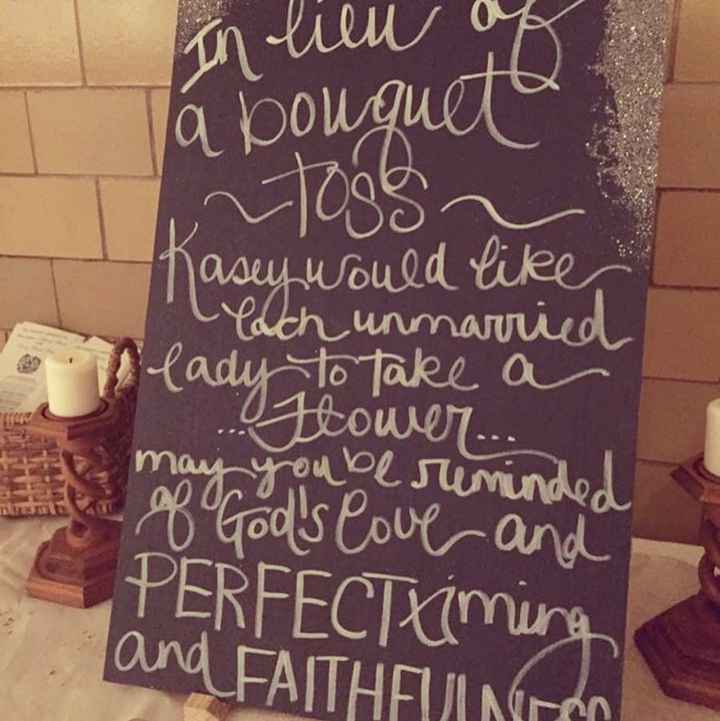 In lieu of
a bouquet
~TOSS~
Kasey would like
each unmarried
lady to take a
...Flower...
may you be reminded
of God's love and
PERFECT timing
and FAITHFULNESS